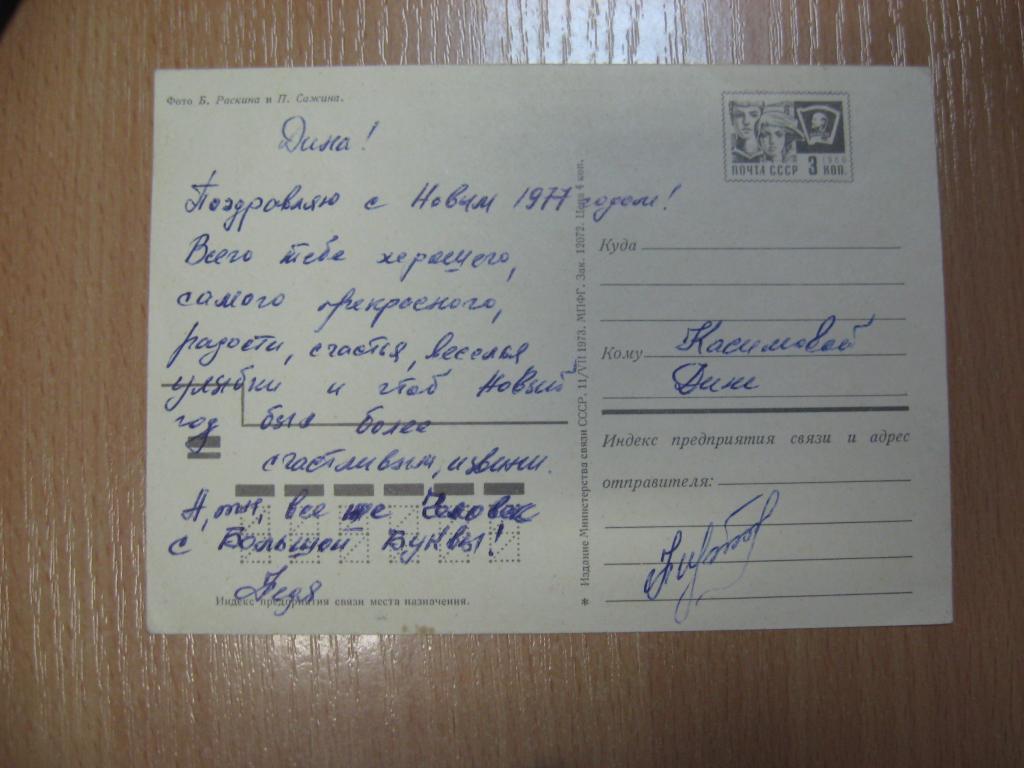 Фото Б. Раскина и П. Сажина.
Дина!
Поздравляю с Новым 1977 годом!
Всего тебе хорошего,
самого прекрасного,
радости, счастья, веселья
улыбки и чтоб Новый
год был более
счастливым, извини.
А, ты, все же Человек
с Большой Буквы!
Индекс предприятия связи места назначения.
* Издание Министерства связи СССР. 11/VII 1973. МПФГ. Зак. 12072. Цена 4 коп.
ПОЧТА СССР 3 КОП.
1966
Куда
Кому Касимовой
Дине
Индекс предприятия связи и адрес
отправителя: